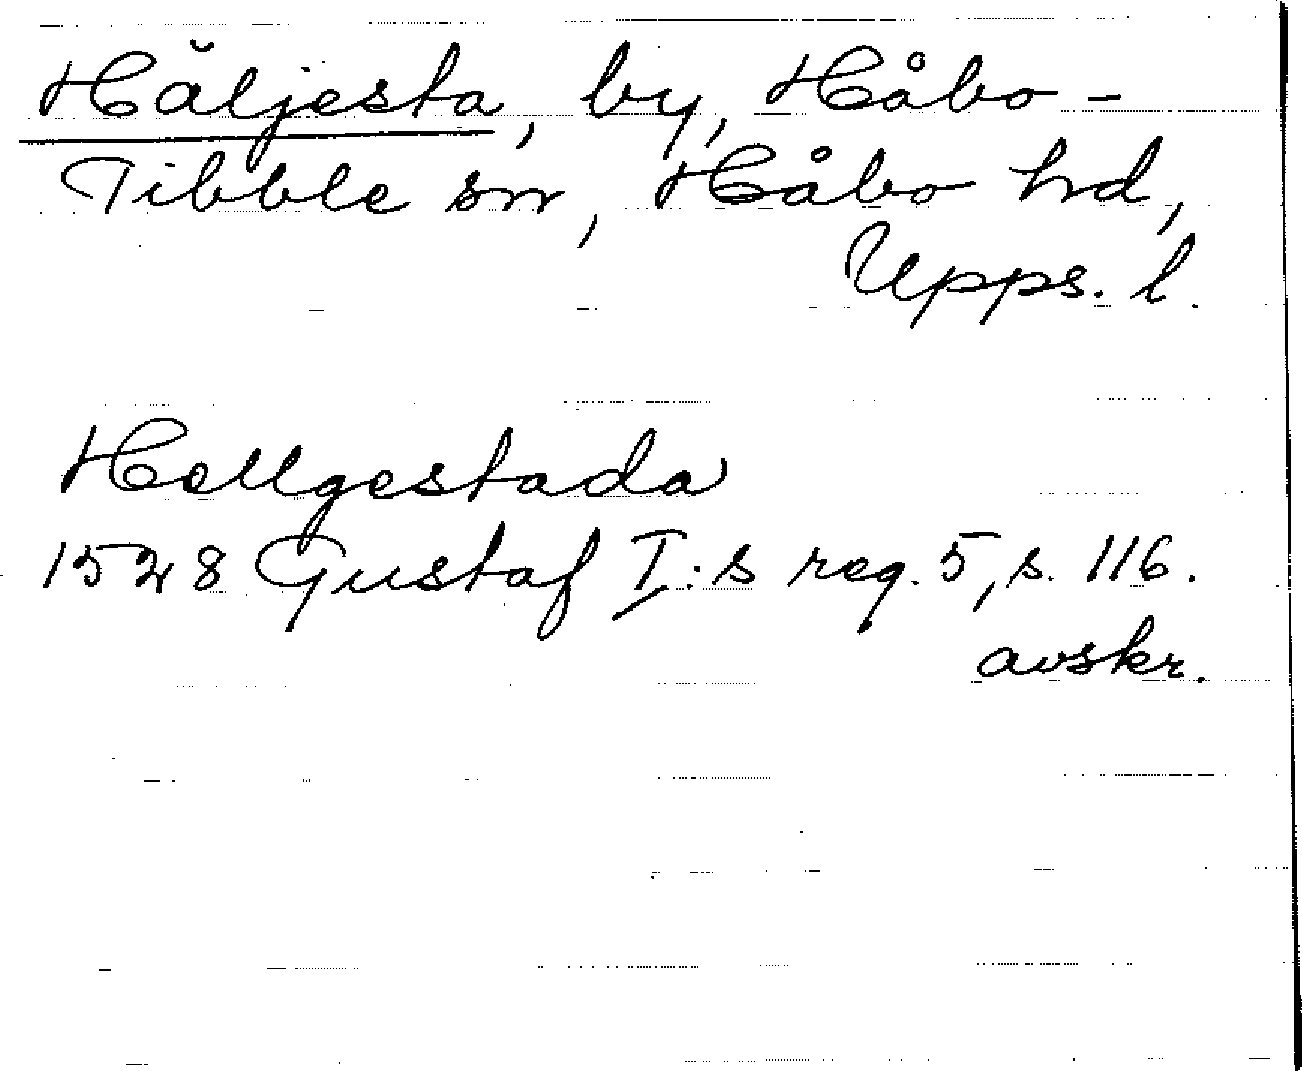 Häljesta, by, Håbo-
Tibble sn, Håbo hd,
Upps. l.
Hellgestada
1528 Gustaf I:s reg. 5, s. 116.
avskr.